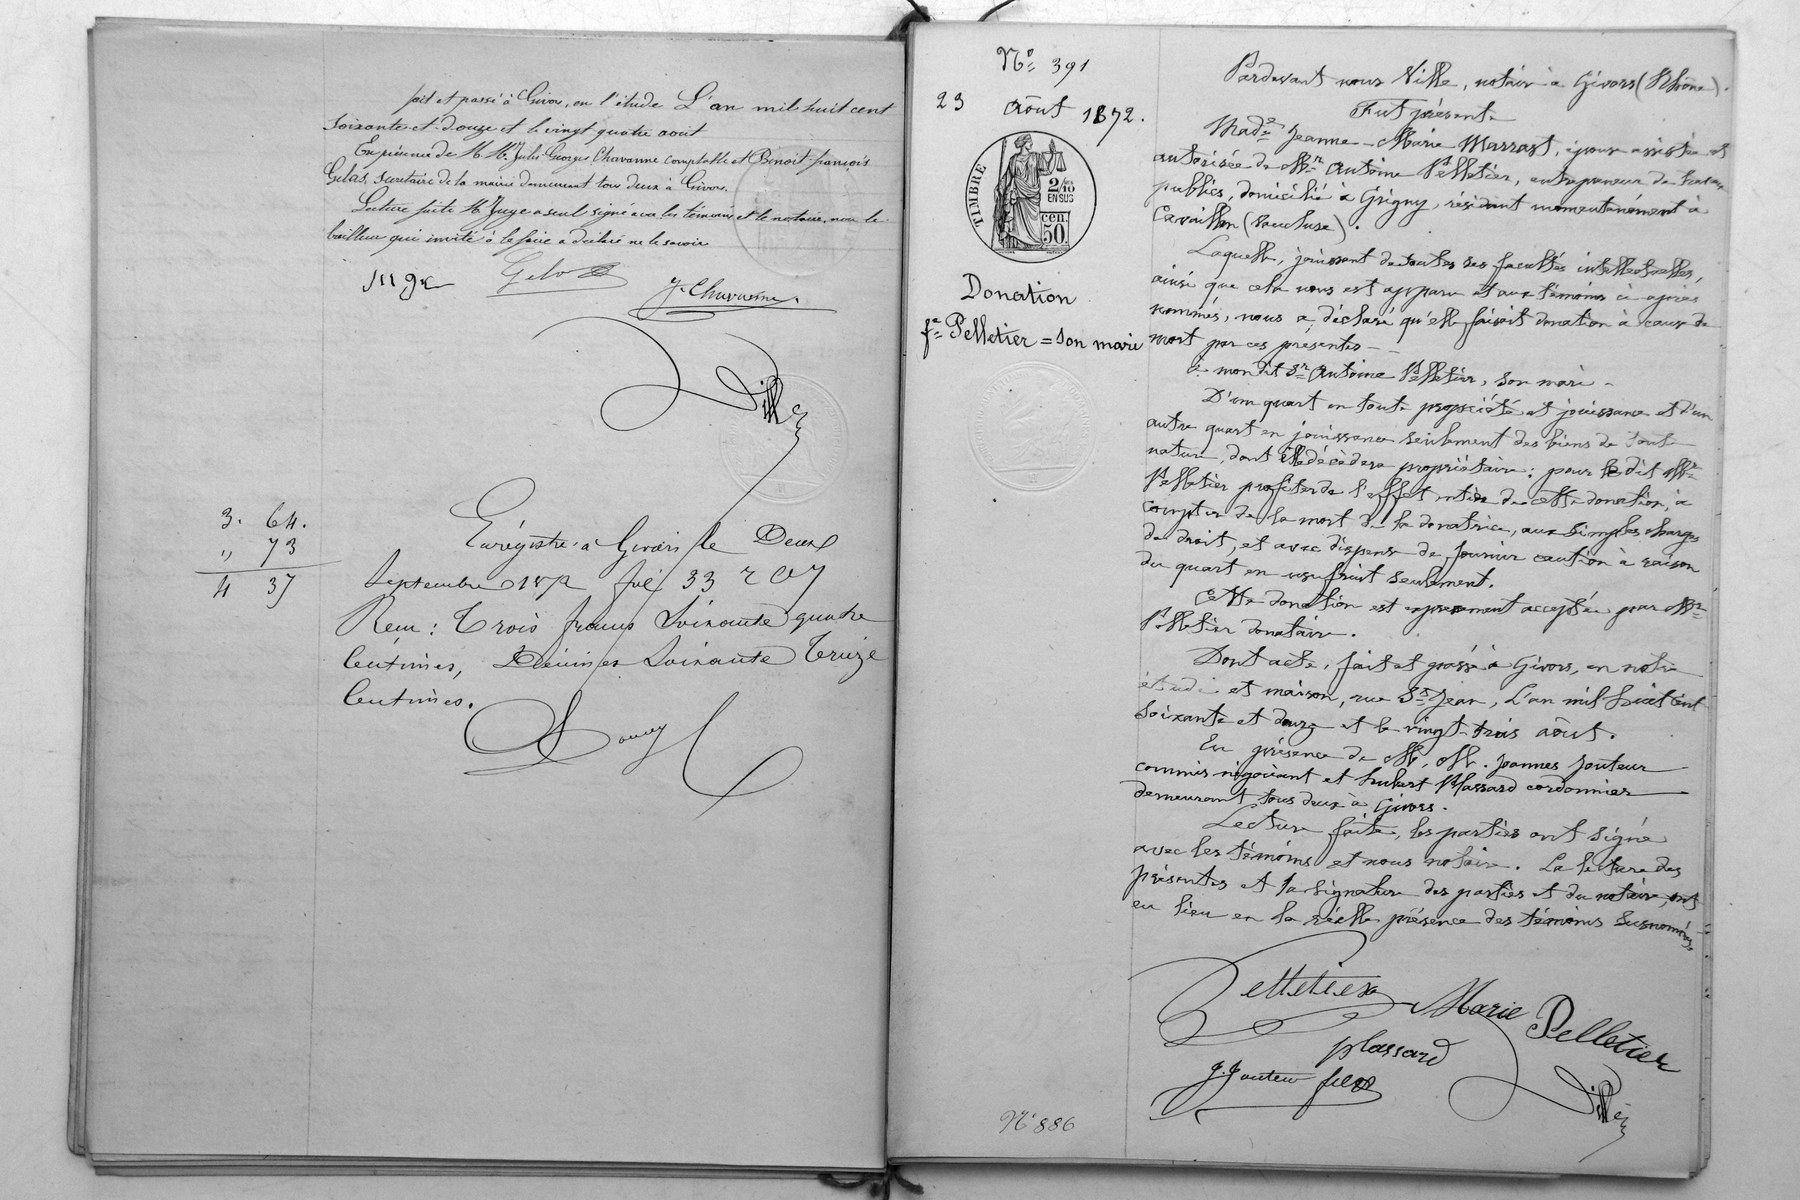 fait et passé à Givors, en l'étude L'an mil huit cent
soixante et douze et le vingt quatre aout
En présence de M. M. Jules Georges Chavanne comptable et Benoit françois
Gelas, secrétaire de la mairie demeurant tous deux à Givors.
Lecture faite Mr Juge a seul signé avec les témoins et le notaire, non le
bailleur qui invité à le faire a déclaré ne le savoir
Juge
Gelas
J. Chavanne
Ville
3. 64.
,, 73
4 37
Enregistré à Givors le Deux
Septembre 1872 fol 33 r C 7
Reçu : Trois francs Soixante quatre
Centimes, Décimes Soixante Treize
Centimes.
No 391
23 Août 1872.
TIMBRE
2/10 EN SUS
50 cen.
Donation
fe Pelletier = son mari
Pardevant nous Ville, notaire à Givors (Rhône).
Fut présente
Made Jeanne-Marie Marrast, épouse assistée et
autorisée de Mr Antoine Pelletier, entrepreneur de travaux
publics, domicilié à Grigny, résidant momentanément à
Cavaillon (Vaucluse).
Laquelle, jouissant de toutes ses facultés intellectuelles,
ainsi que cela nous est apparu et aux témoins ci après
nommés, nous a déclaré qu'elle faisait donation à cause de
mort par ces présentes
à mondit Sr Antoine Pelletier, son mari
D'un quart en toute propriété et jouissance et d'un
autre quart en jouissance seulement des biens de toute
nature, dont elle décèdera propriétaire : pour le dit Mr
Pelletier profiter de l'effet entier de cette donation, à
compter de la mort de la donatrice, aux simples charges
de droit, et avec dispense de fournir caution à raison
du quart en usufruit seulement.
Cette donation est expressément acceptée par Mr
Pelletier donataire.
Dont acte, fait et passé à Givors, en notre
étude et maison, rue St Jean, L'an mil huit cent
soixante et douze et le vingt-trois août.
En présence de M. M. Joannes Jouteur
commis négociant et hubert Plassard cordonnier
demeurant tous deux à Givors.
Lecture faite, les parties ont signé
avec les témoins et nous notaire. La lecture des
présentes et la signature des parties et du notaire, ont
eu lieu en la réelle présence des témoins susnommés.
Pelletier
Marie Pelletier
plassard
J. Jouteur fils
Ville
No 886